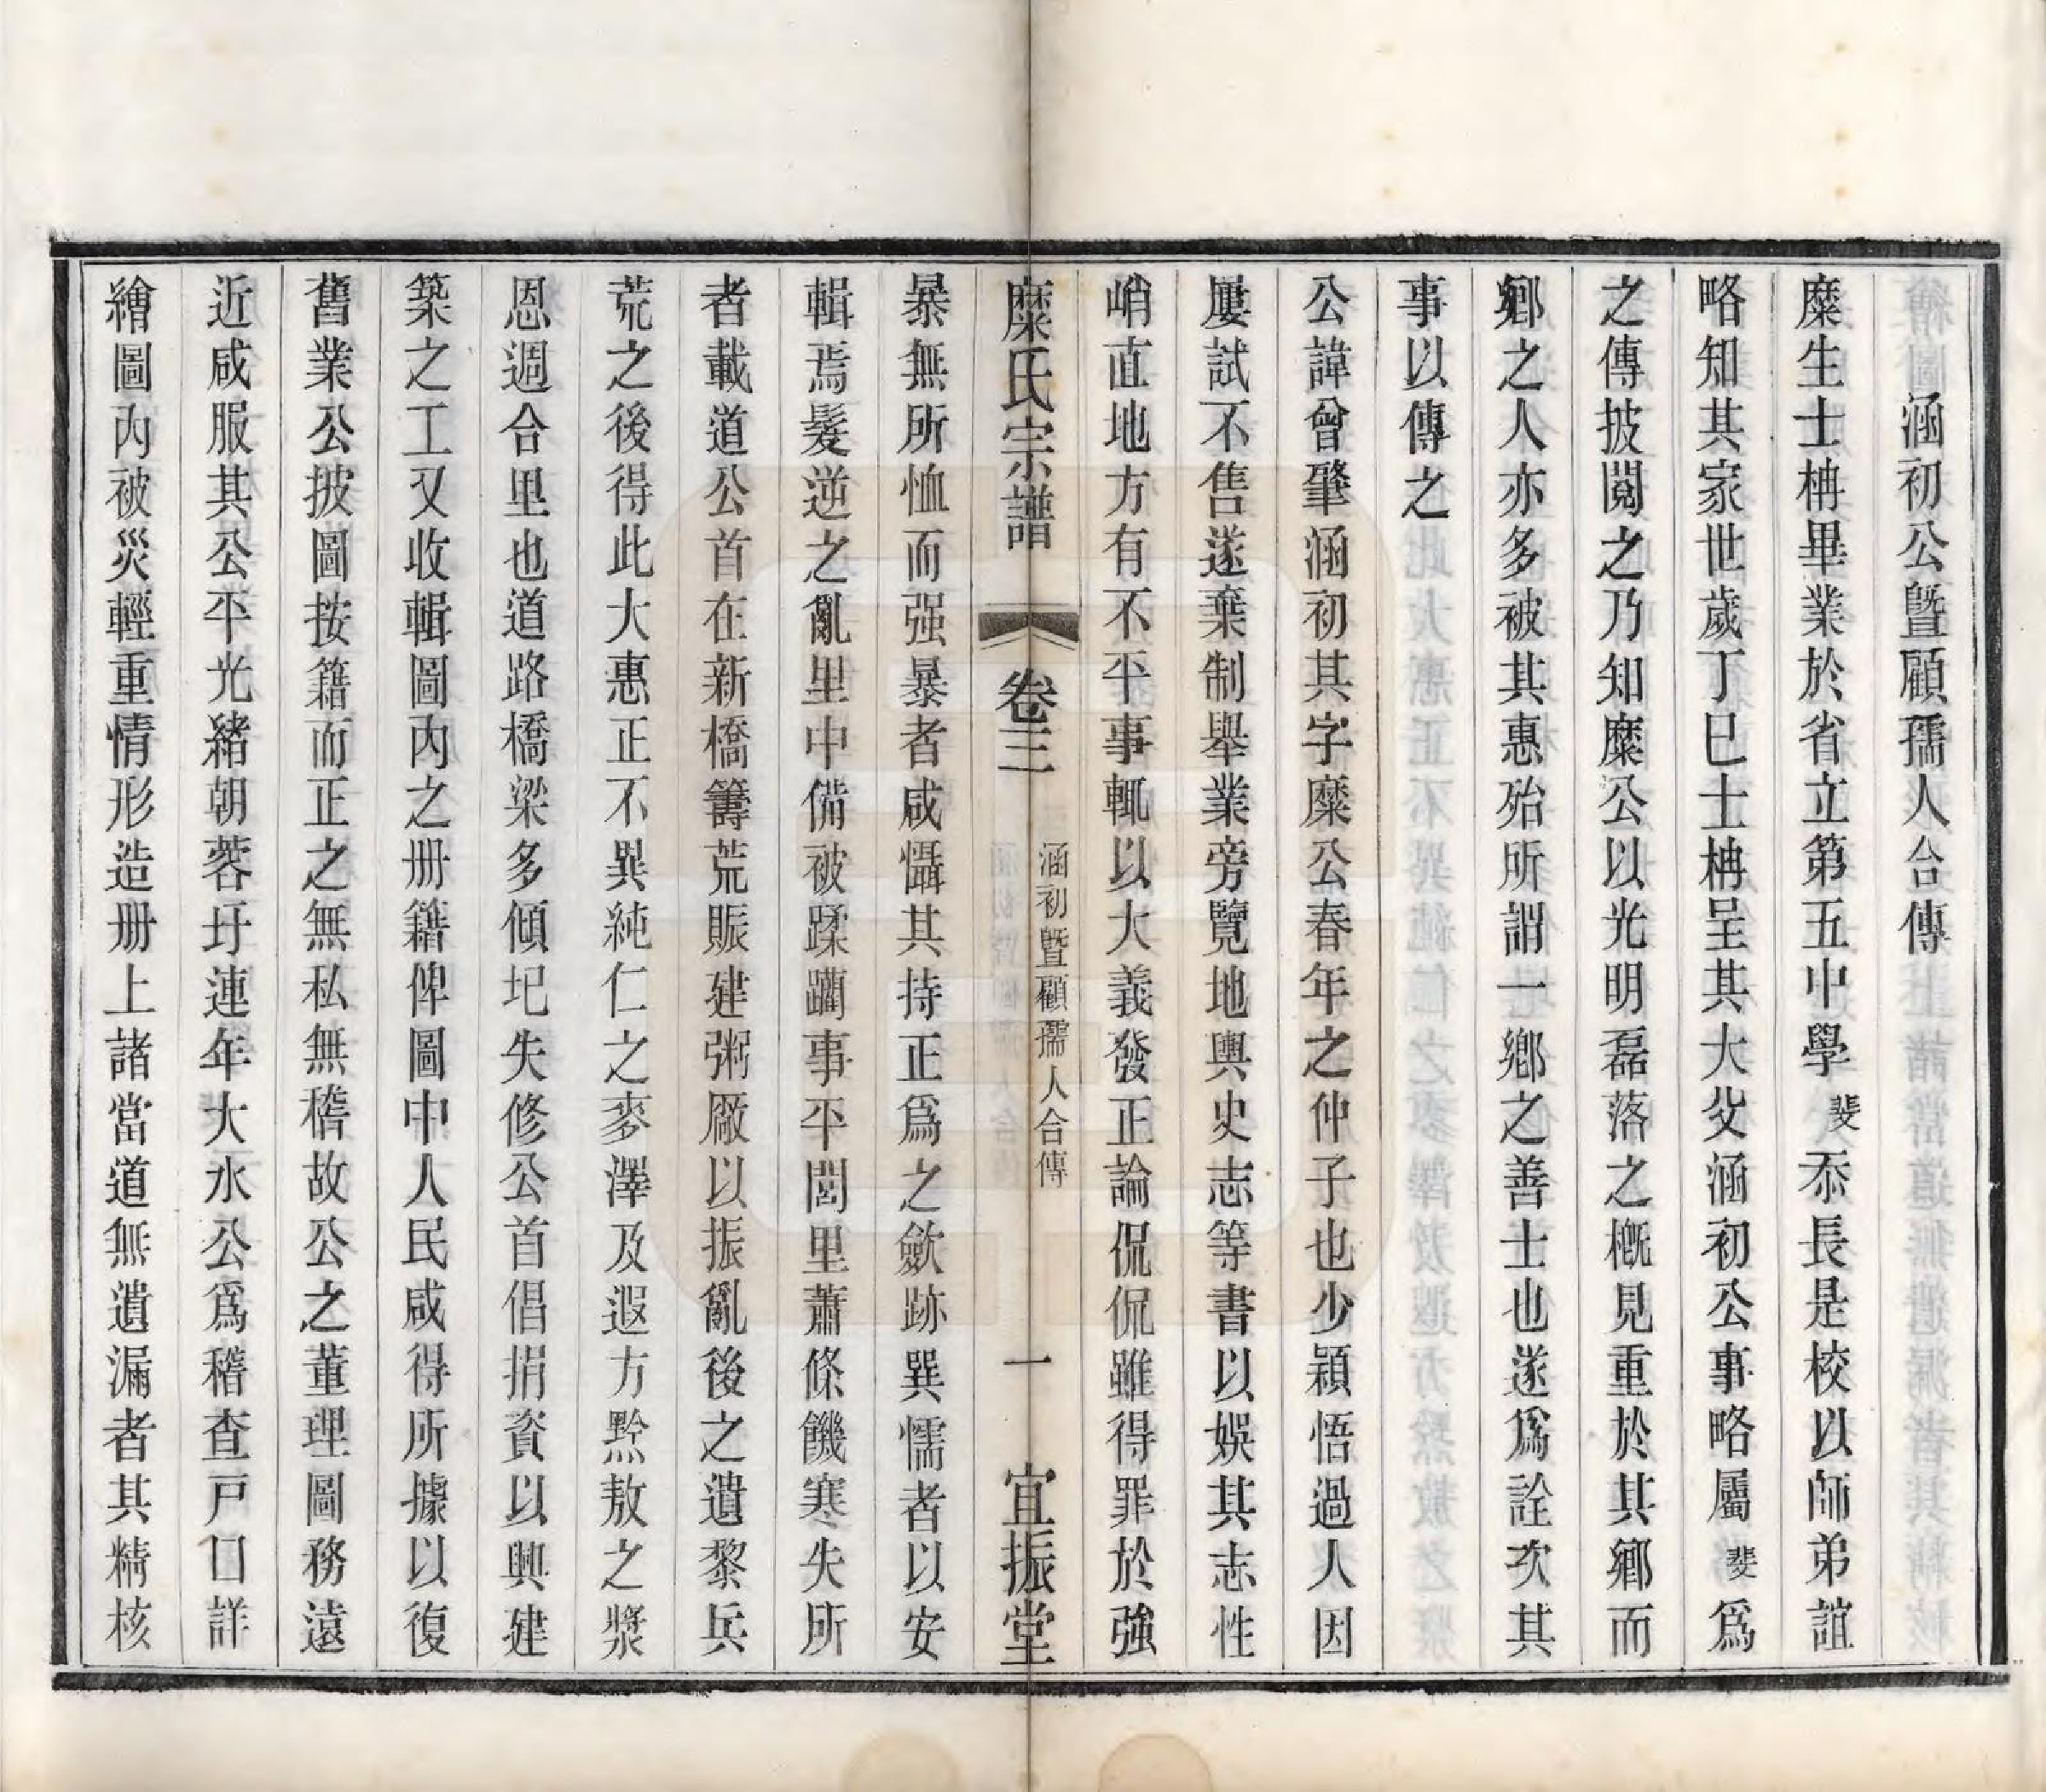 涵初公曁顧孺人合傳
糜生士枏畢業於省立第五中學斐忝長是校以師弟誼
略知其家世歲丁巳士枏呈其大父涵初公事略屬斐爲
之傳披閱之乃知糜公以光明磊落之槪見重於其鄉而
鄉之人亦多被其惠殆所謂一鄉之善士也遂爲詮次其
事以傳之
公諱曾肇涵初其字糜公春年之仲子也少穎悟過人因
屢試不售遂棄制舉業旁覽地輿史志等書以娛其志性
峭直地方有不平事輒以大義發正論侃侃雖得罪於強
糜氏宗譜 卷三 涵初曁顧孺人合傳 一 宜振堂
暴無所恤而强暴者咸懾其持正爲之歛跡巽懦者以安
輯焉髮逆之亂里中備被蹂躪事平閭里蕭條饑寒失所
者載道公首在新橋籌荒賑建粥廠以振亂後之遺黎兵
荒之後得此大惠正不異純仁之麥澤及遐方黔敖之漿
恩週合里也道路橋梁多傾圮失修公首倡捐資以興建
築之工又收輯圖內之册籍俾圖中人民咸得所據以復
舊業公披圖按籍而正之無私無稽故公之董理圖務遠
近咸服其公平光緒朝蓉圩連年大水公爲稽查戸口詳
繪圖內被災輕重情形造册上諸當道無遺漏者其精核